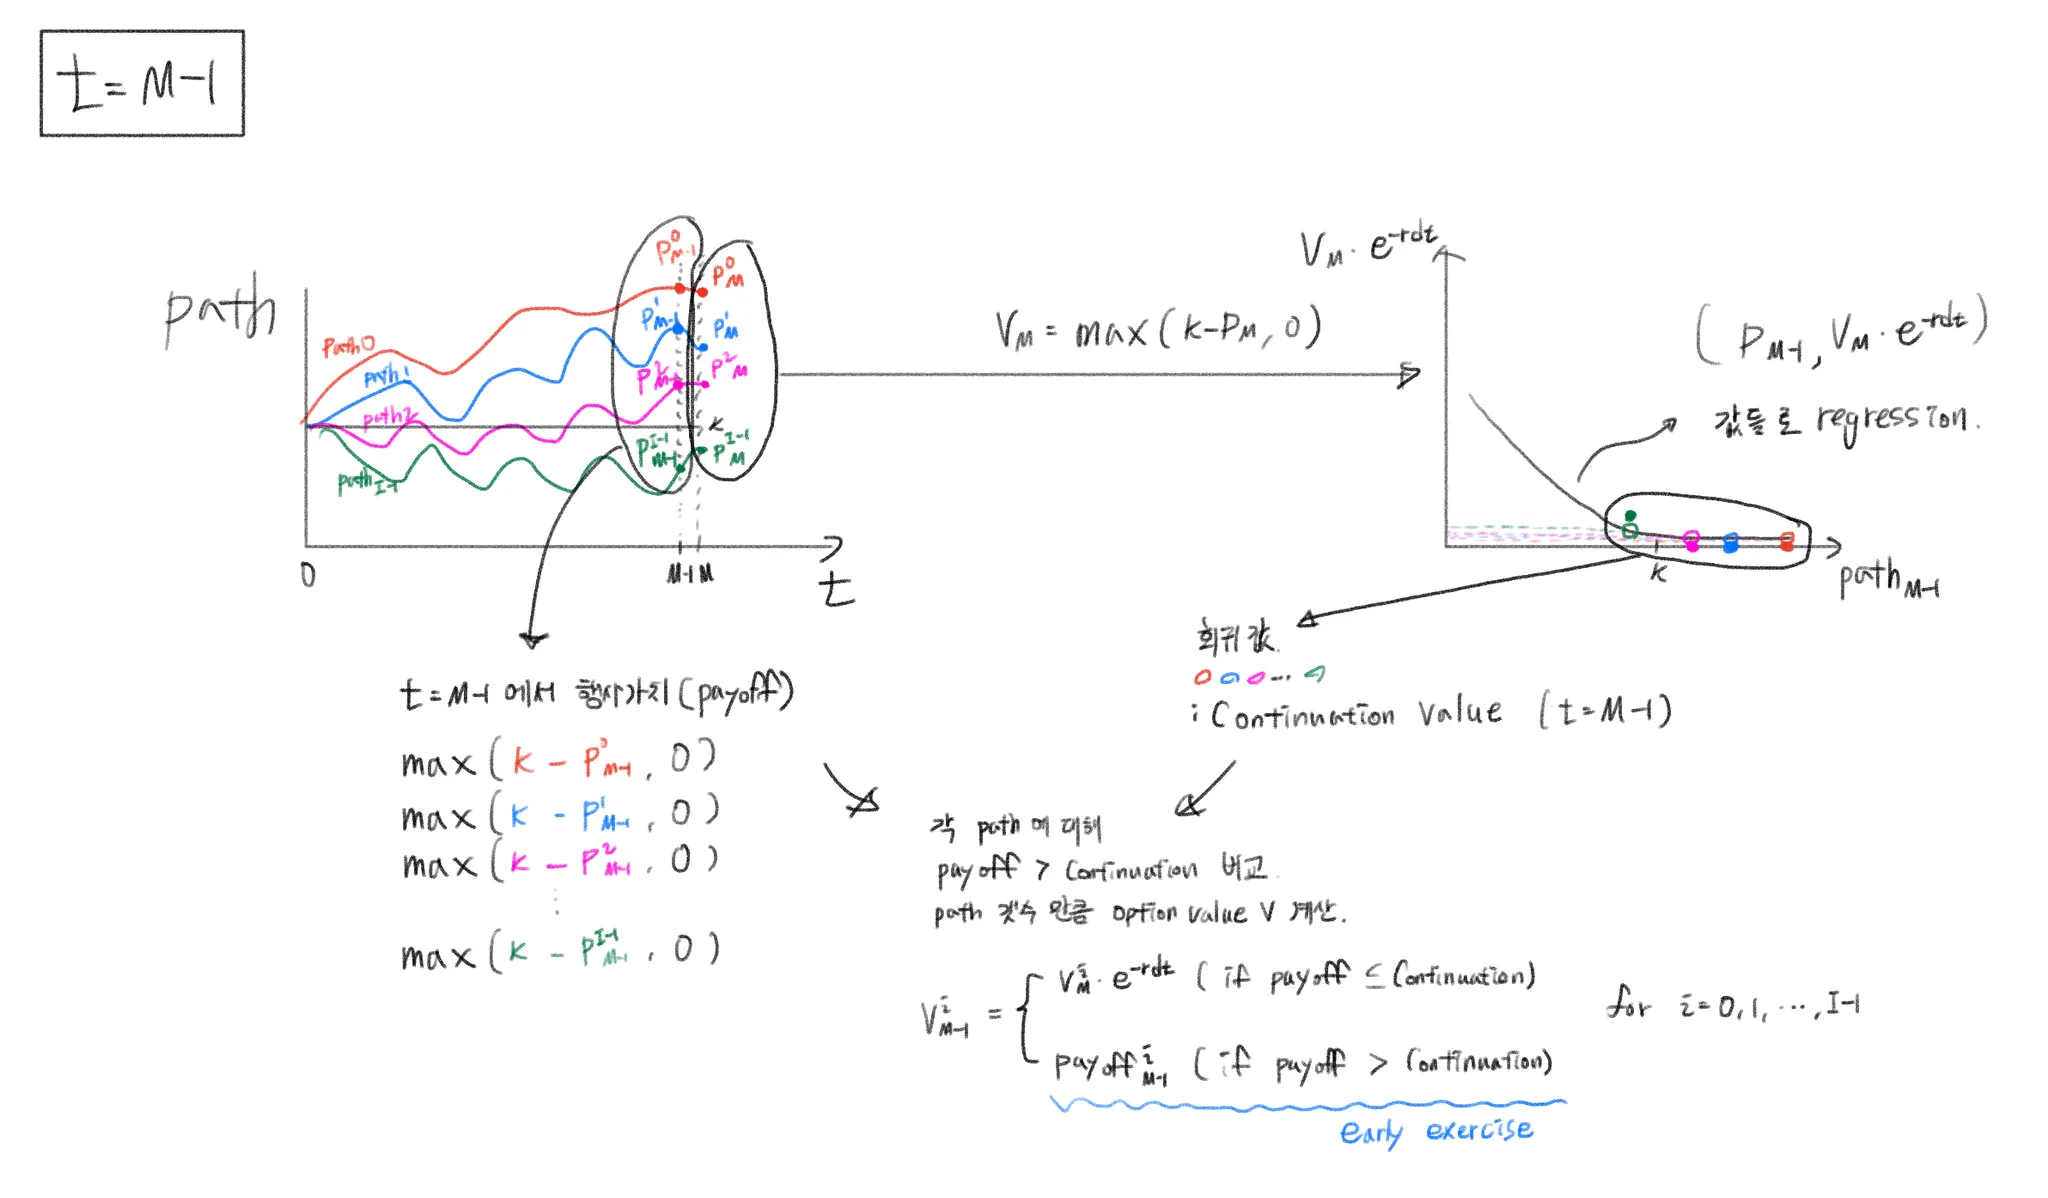 t = M-1
path
path0
path1
path2
path_{I-1}
P^0_{M-1}
P^0_M
P^1_{M-1}
P^1_M
P^2_{M-1}
P^2_M
K
P^{I-1}_{M-1}
P^{I-1}_M
0
M-1 M
t
V_M = max(K-P_M, 0)
V_M · e^{-rdt}
(P_{M-1}, V_M · e^{-rdt})
값들로 regression.
K
path_{M-1}
회귀값.
...
: Continuation Value (t=M-1)
t=M-1 에서 행사가치(payoff)
max(K - P^0_{M-1}, 0)
max(K - P^1_{M-1}, 0)
max(K - P^2_{M-1}, 0)
⋮
max(K - P^{I-1}_{M-1}, 0)
각 path에 대해
payoff > Continuation 비교.
path 갯수 만큼 option value V 계산.
V^i_{M-1} = { V^i_M · e^{-rdt} (if payoff ≤ Continuation)
payoff^i_{M-1} (if payoff > Continuation)
for i=0,1,...,I-1
early exercise